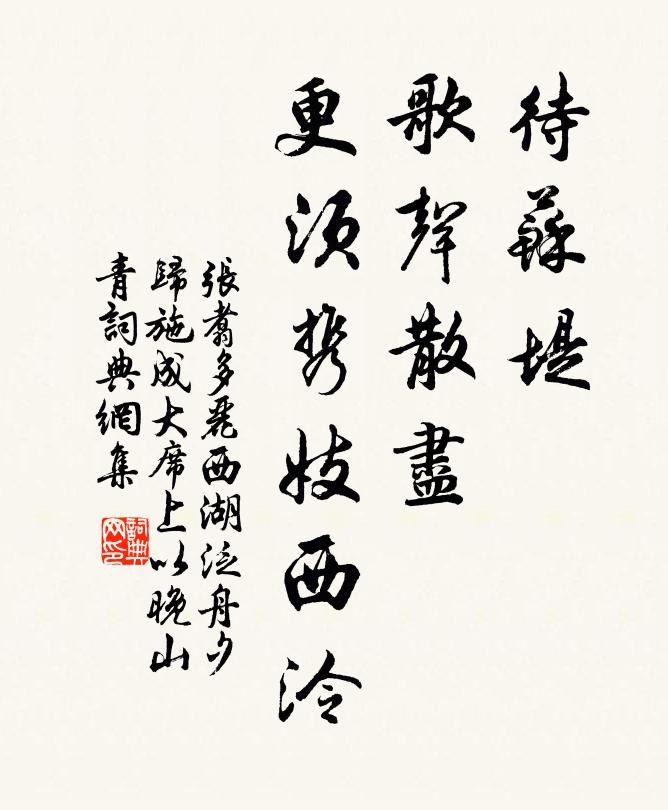 待蘇堤
歌聲散盡
更須携妓西泠
張翥多麗西湖泛舟夕
歸施成大席上以晚山
青詞典網集
詞典网印